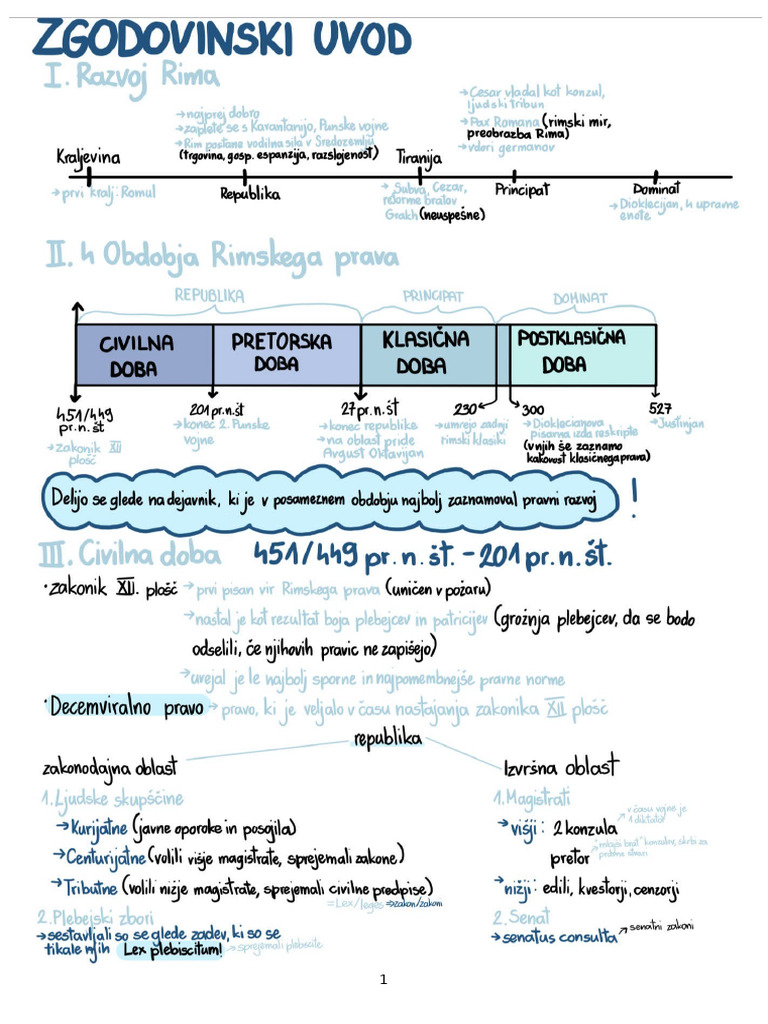 ZGODOVINSKI UVOD
I. Razvoj Rima
→najprej dobro
→zaplete se s Kavantanijo, Punske vojne
→Rim postane vodilna sila v Sredozemlju
(trgovina, gosp. espanzija, razslojenost)
→Cesar vladal kot konzul,
ljudski tribun
→Pax Romana (rimski mir,
preobrazba Rima)
→vdori germanov
Kraljevina
Tiranija
→prvi kralj: Romul
Republika
→ Subva, Cezar,
reforme bratov
Grakh (neuspešne)
Principat
Dominat
→Dioklecijan, 4 upravne
enote
II. 4 Obdobja Rimskega prava
REPUBLIKA
PRINCIPAT
DOMINAT
CIVILNA
DOBA
PRETORSKA
DOBA
KLASIČNA
DOBA
POSTKLASIČNA
DOBA
451/449
pr.n.št
→zakonik XII
plošč
201 pr.n.št
→konec 2. Punske
vojne
27 pr.n.št
→konec republike
→na oblast pride
Avgust Oktavijan
230
→umrejo zadnji
rimski klasiki
300
→Dioklecianova
pisarna izda reskripte
(v njih še zaznamo
kakovost klasičnega prava)
527
→Justinjan
Delijo se glede na dejavnik, ki je v posameznem obdobju najbolj zaznamoval pravni razvoj !
III. Civilna doba 451/449 pr. n. št. - 201 pr. n. št.
·zakonik XII. plošč →prvi pisan vir Rimskega prava (uničen v požaru)
→nastal je kot rezultat boja plebejcev in patricijev (grožnja plebejcev, da se bodo
odselili, če njihovih pravic ne zapišejo)
→urejal je le najbolj sporne in najpomembnejše pravne norme
·Decemviralno pravo →pravo, ki je veljalo v času nastajanja zakonika XII plošč
republika
zakonodajna oblast
Izvršna oblast
1.Ljudske skupščine
→Kurijatne (javne oporoke in posojila)
→Centurijatne (volili višje magistrate, sprejemali zakone)
→Tributne (volili nižje magistrate, sprejemali civilne predpise)
=Lex/leges →zakon/zakoni
2.Plebejski zbori
→sestavljali so se glede zadev, ki so se
tikale njih Lex plebiscitum! →sprejemali plebiscite
1.Magistrati
→višji: 2 konzula
→v času vojne je
1 diktator
pretor
→"mlajši brat" konzulov, skrbi za
→nižji: edili, kvestorji, cenzorji
2. Senat
→senatus consulta →senatni zakoni
1